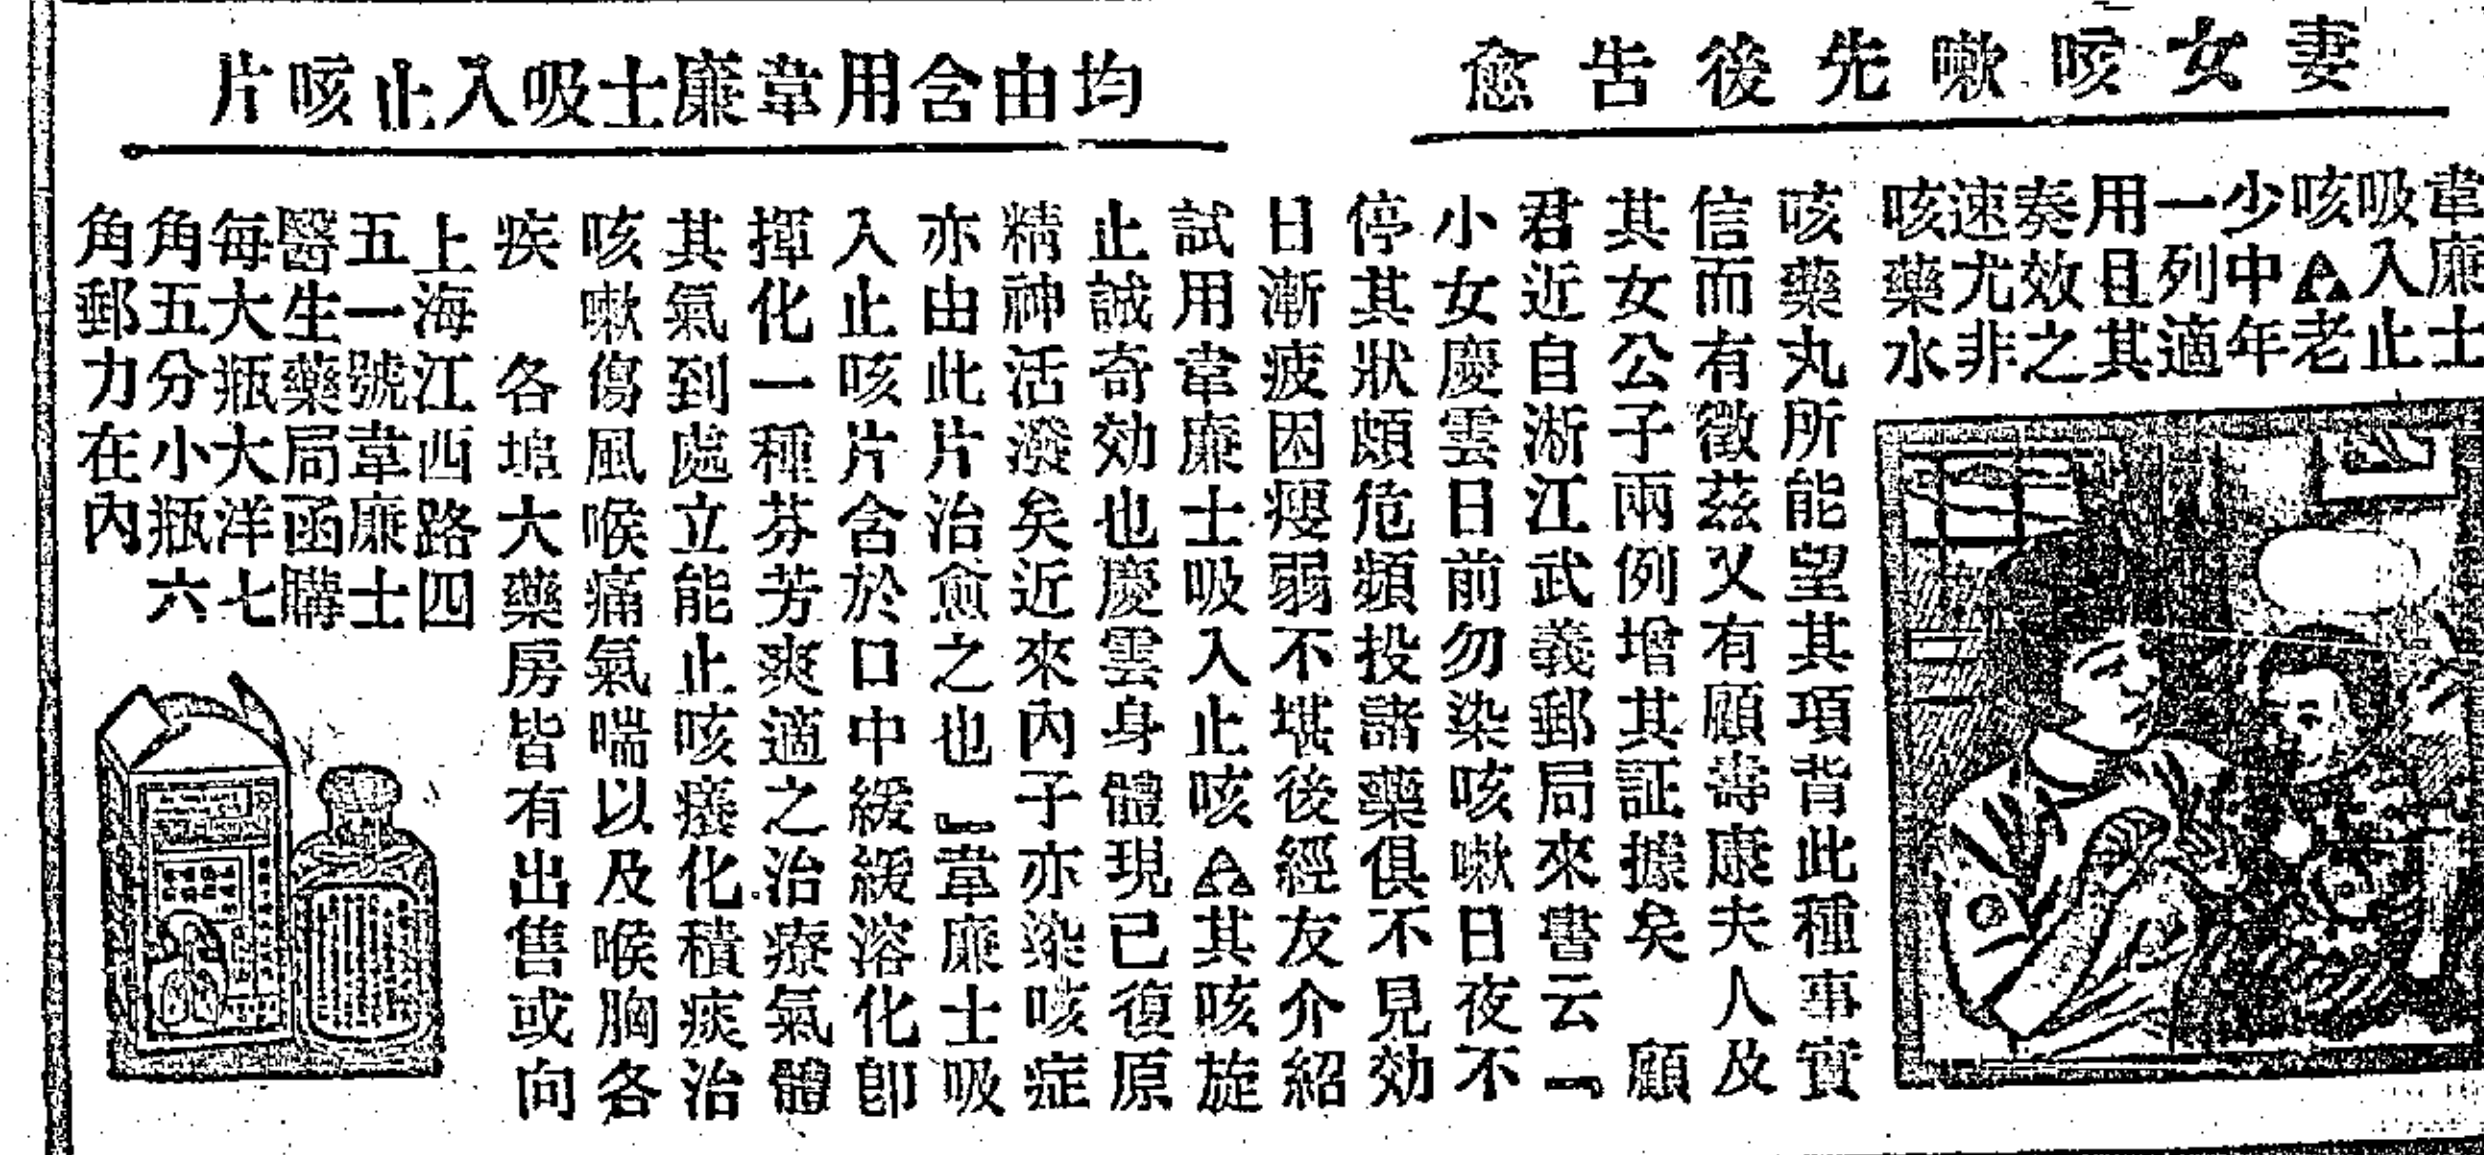 妻女咳嗽先後告愈
均由含用韋廉士吸入止咳片
韋廉士
吸入止
咳△老
少中年
一列適
用且其
奏效之
速尤非
咳藥水
咳藥丸所能望其項背此種事實
信而有徵茲又有顧壽康夫人及
其女公子兩例增其証據矣 顧
君近自浙江武義郵局來書云「
小女慶雲日前勿染咳嗽日夜不
停其狀頗危頻投諸藥俱不見効
日漸疲困瘦弱不堪後經友介紹
試用韋廉士吸入止咳△其咳旋
止誠奇効也慶雲身體現已復原
精神活潑矣近來內子亦染咳症
亦由此片治愈之也」韋廉士吸
入止咳片含於口中緩緩溶化即
揮化一種芬芳爽適之治療氣體
其氣到處立能止咳癢化積痰治
咳嗽傷風喉痛氣喘以及喉胸各
疾 各埠大藥房皆有出售或向
上海江西路四
五一號韋廉士
醫生藥局函購
每大瓶大洋七
角五分小瓶六
角郵力在內